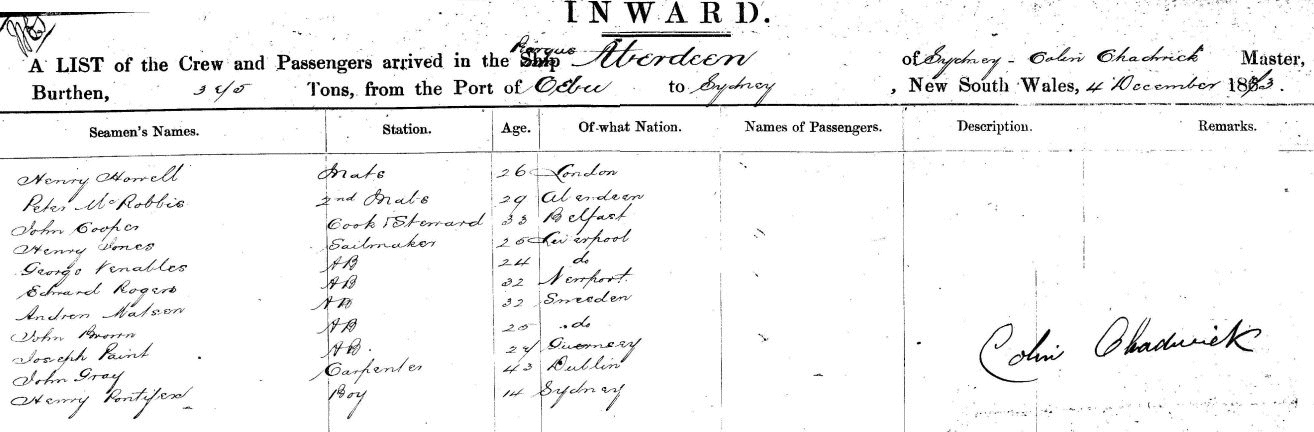 INWARD.
A LIST of the Crew and Passengers arrived in the Ship Barque Aberdeen of Sydney - Colin Chadwick Master,
Burthen, Tons, from the Port of Cebu to Sydney, New South Wales, 4 December 1883.
Seamen's Names. Station. Age. Of what Nation. Names of Passengers. Description. Remarks.
Henry Howell Mate 26 London
Peter McRobbie 2nd Mate 29 Aberdeen
John Cooper Cook & Steward 33 Belfast
Henry Jones Sailmaker 25 Liverpool
George Venables AB 24 do
Edward Rogers AB 32 Newport
Andrew Matson AB 32 Sweeden
John Brown AB 25 do
Joseph Paint AB Guernsey
John Gray Carpenter 43 Dublin
Henry Pontifex Boy 14 Sydney
Colin Chadwick